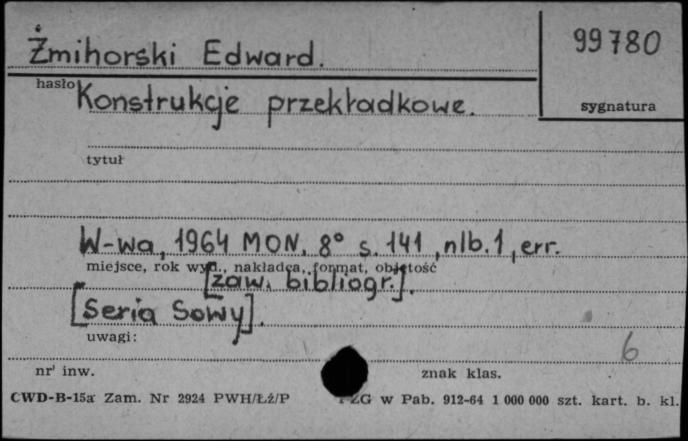 Żmihorski Edward.
99780
hasło
Konstrukcje przekładkowe.
sygnatura
tytuł
W-wa, 1964 MON, 8° s. 141, nlb. 1, err.
miejsce, rok wyd., nakładca, format, objętość
[zaw. bibliogr.].
[Seria Sowy].
uwagi:
6
nr inw.
znak klas.
CWD-B-15a Zam. Nr 2924 PWH/Łź/P
w Pab. 912-64 1 000 000 szt. kart. b. kl.